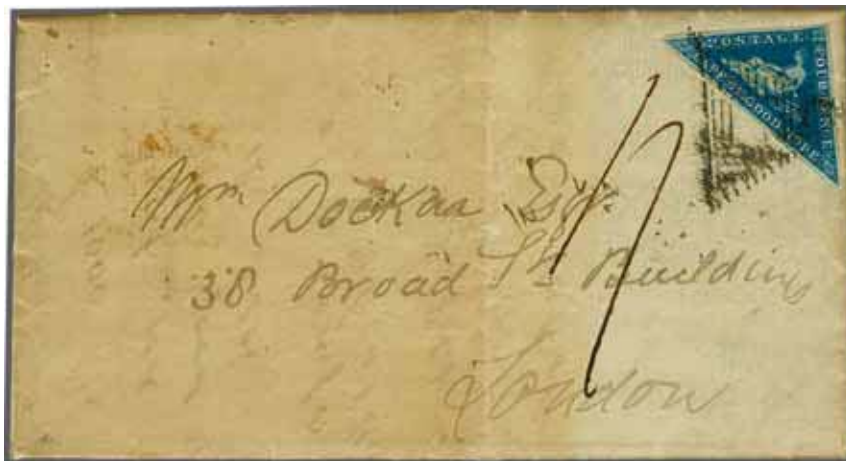 POSTAGE
FOUR PENCE
CAPE OF GOOD HOPE
Wm Dockaa Esqr.
38 Broad St Buildings
London